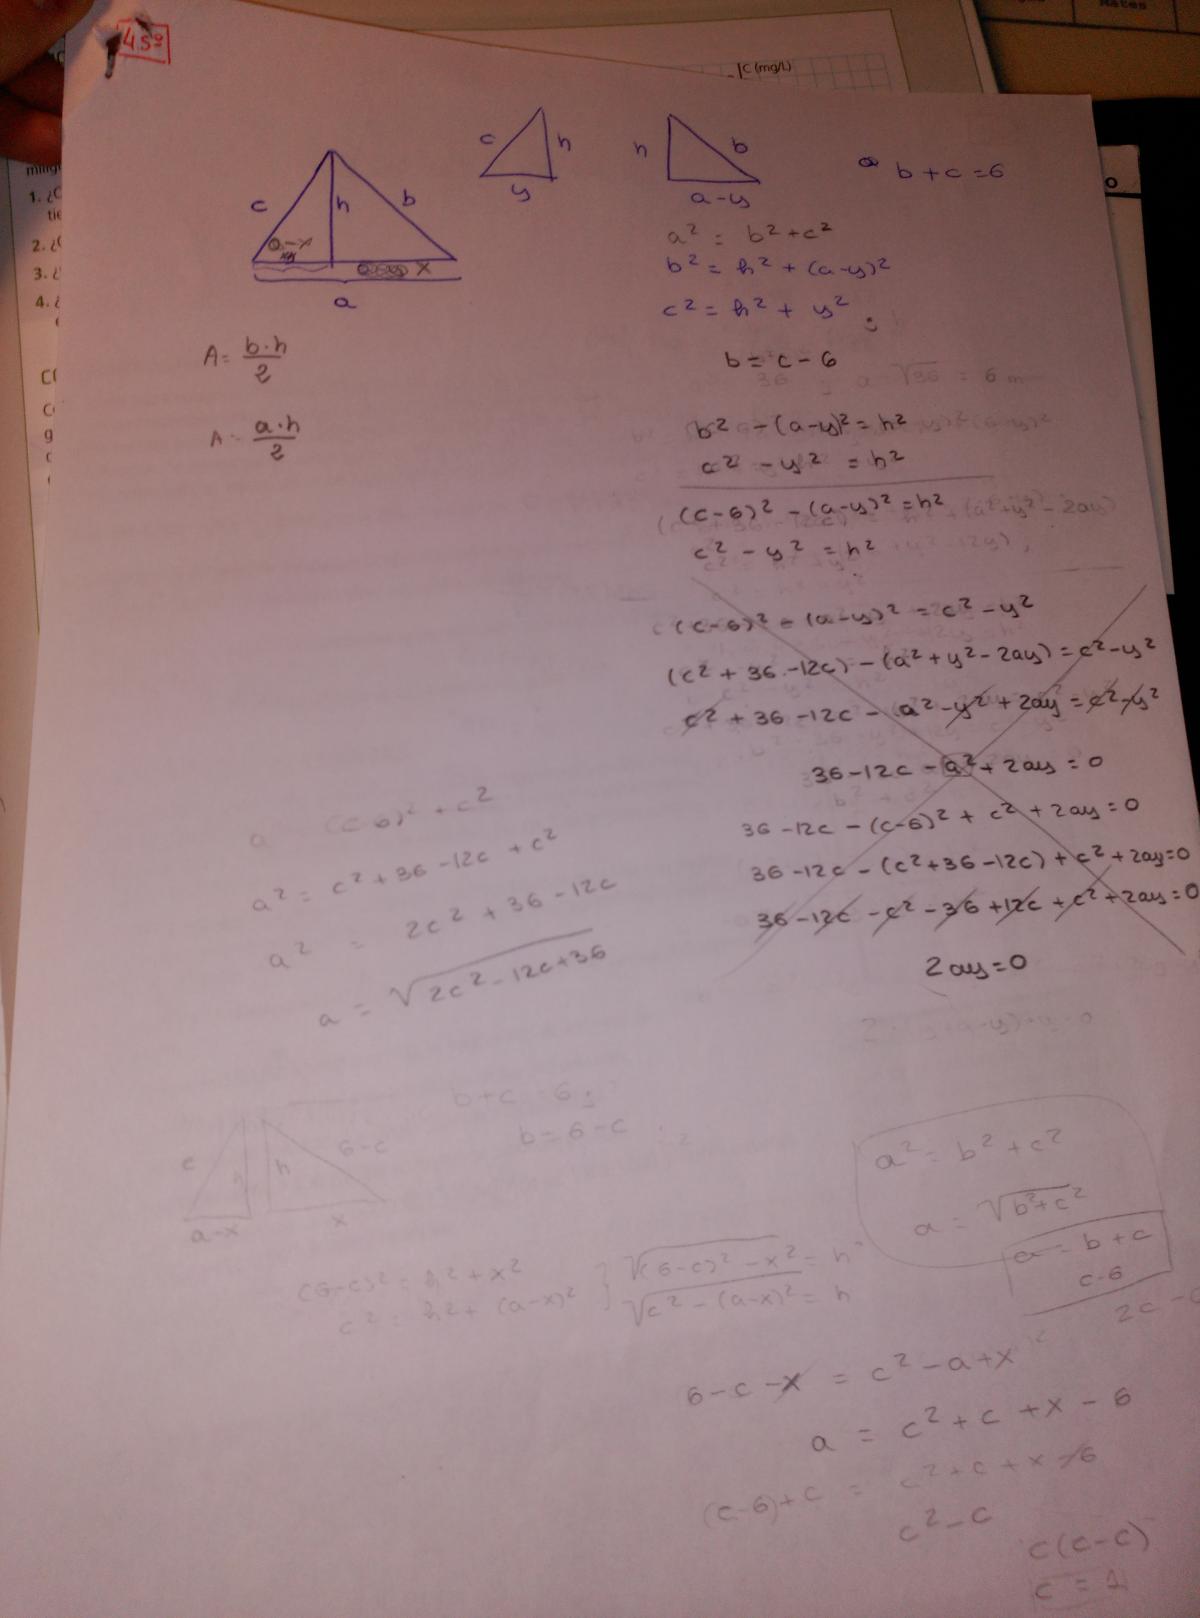 45º
C (mg/L)
1. ¿
2. ¿
3. ¿
4. ¿
c h b
a-x
x
a
c h
y
h b
a-y
b + c = 6
a² = b² + c²
b² = h² + (a-y)²
c² = h² + y²
b = c - 6
A = b·h / 2
A = a·h / 2
b² - (a-y)² = h²
c² - y² = h²
(c-6)² - (a-y)² = h²
c² - y² = h²
(c-6)² - (a-y)² = c² - y²
(c² + 36 - 12c) - (a² + y² - 2ay) = c² - y²
c² + 36 - 12c - a² - y² + 2ay = c² - y²
36 - 12c - a² + 2ay = 0
36 - 12c - (c-6)² + c² + 2ay = 0
36 - 12c - (c² + 36 - 12c) + c² + 2ay = 0
36 - 12c - c² - 36 + 12c + c² + 2ay = 0
2ay = 0
a (c-6)² + c²
a² = c² + 36 - 12c + c²
a² = 2c² + 36 - 12c
a = √2c² - 12c + 36
b + c = 6;
b = 6 - c
c h
a-x
h 6-c
x
(6-c)² = h² + x²
c² = h² + (a-x)²
√(6-c)² - x² = h
√c² - (a-x)² = h
a² = b² + c²
a = √b² + c²
a = b + c
c-6
2c -
6 - c - x = c² - a + x
a = c² + c + x - 6
(c-6) + c = c² + c + x - 6
c² - c
c(c-c)
c = 1